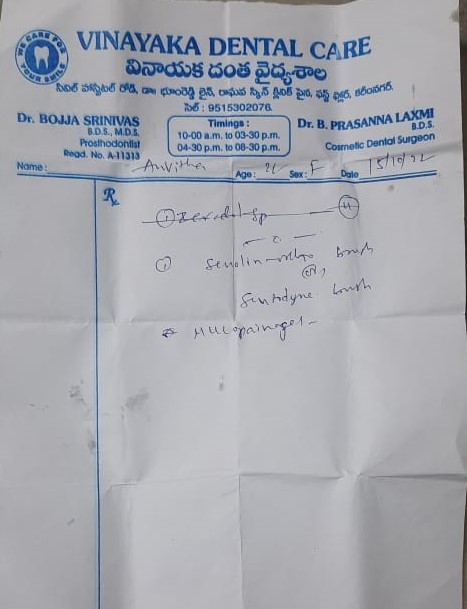 WE CARE FOR
YOUR SMILE
VINAYAKA DENTAL CARE
వినాయక దంత వైద్యశాల
సివిల్ హాస్పిటల్ రోడ్, డా॥ భూంరెడ్డి లైన్, రాఘవ స్కిన్ క్లినిక్ పైన, ఫస్ట్ ఫ్లోర్, కరీంనగర్.
సెల్ : 9515302076.
Dr. BOJJA SRINIVAS
B.D.S., M.D.S.
Prosthodontist
Regd. No. A-11313
Timings :
10-00 a.m. to 03-30 p.m.
04-30 p.m. to 08-30 p.m.
Dr. B. PRASANNA LAXMI
B.D.S.
Cosmetic Dental Surgeon
Name : Anvitha Age : Sex : F Date 15/10/22
Rx
① sp
① Senolin-ortho brush
(or)
Sensodyne brush
* Mucopaingel